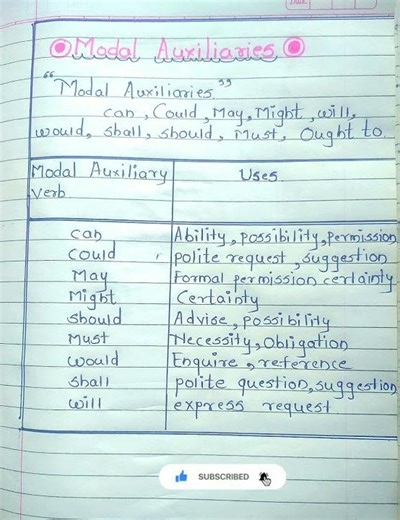 Modal Auxiliaries
"Modal Auxiliaries"
can, Could, May, Might, will,
would, shall, should, Must, Ought to
Modal Auxiliary Uses
verb
can Ability, possibility, permission
Could polite request, suggestion
May Formal permission certainty
Might Certainty
should Advise, possibility
Must Necessity, Obligation
would Enquire, reference
shall polite question, suggestion
will express request
SUBSCRIBED